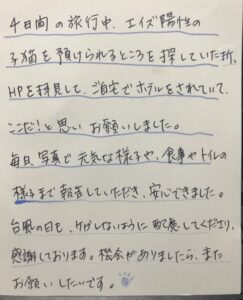 4日間の旅行中、エイズ陽性の
子猫を預けられるところを探していた折、
HPを拝見して、ご自宅でホテルをされていて、
ここだ!と思いお願いしました。
毎日、写真で元気な様子や、食事やトイレの
様子まで報告していただき、安心できました。
台風の日も、ケガしないように配慮してくださり、
感謝しております。機会がありましたら、また
お願いしたいです。